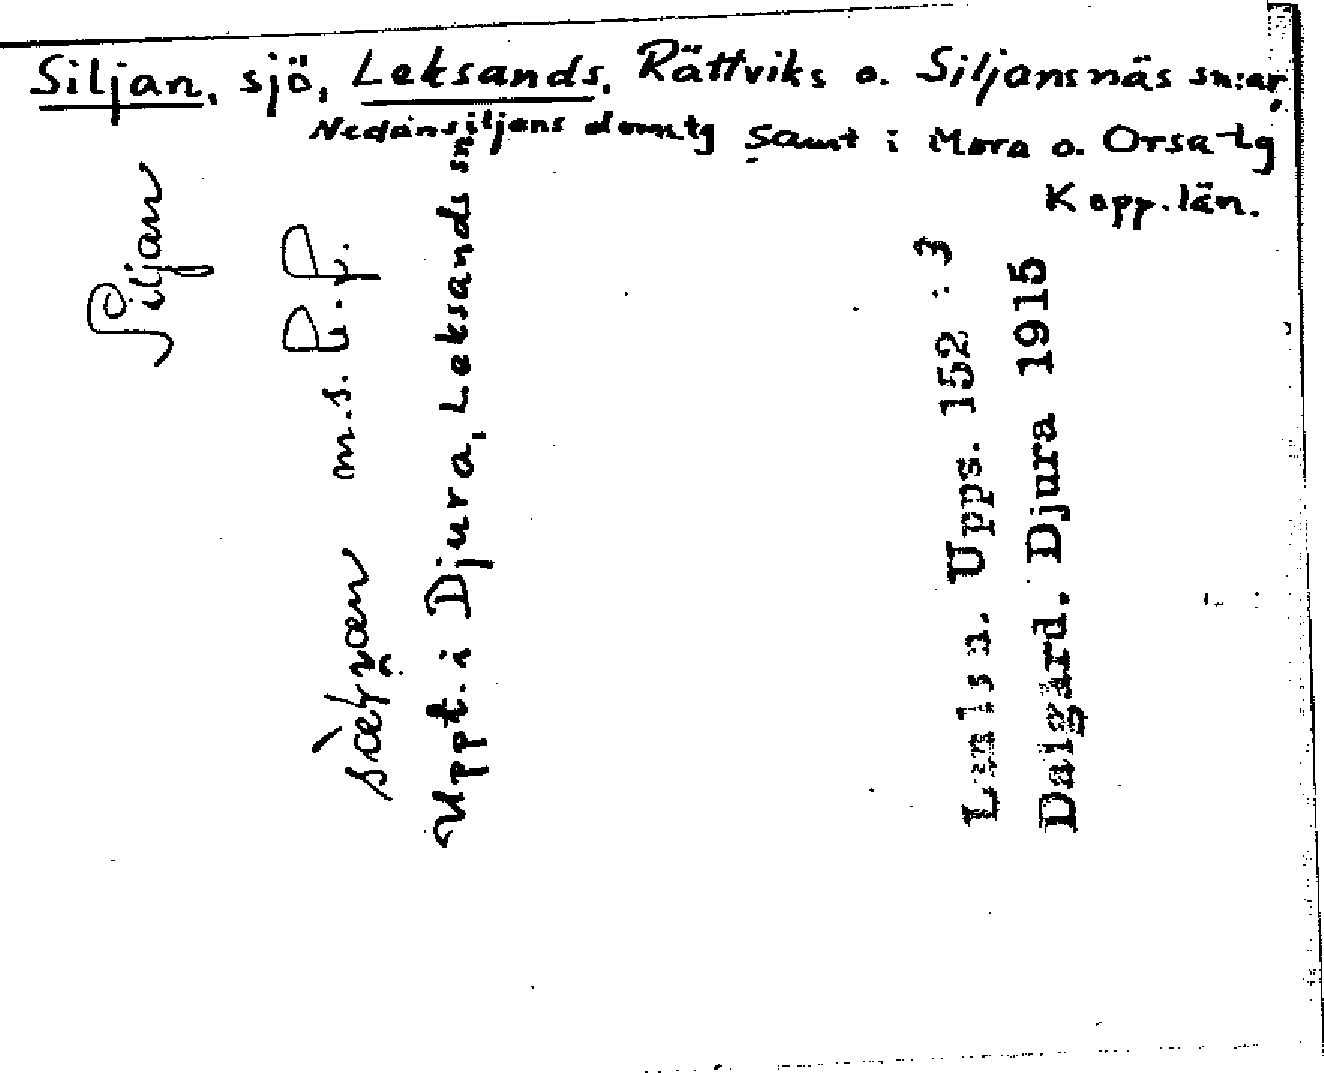 Siljan, sjö, Leksands, Rättviks o. Siljansnäs sn:ar,
Nedansiljans domtg samt i Mora o. Orsa tg
Kopp. län.
Siljan
m.s. P.P.
Uppt. i Djura, Leksands sn
Lmlsn. Upps. 152 : 3
Dalgärd. Djura 1915